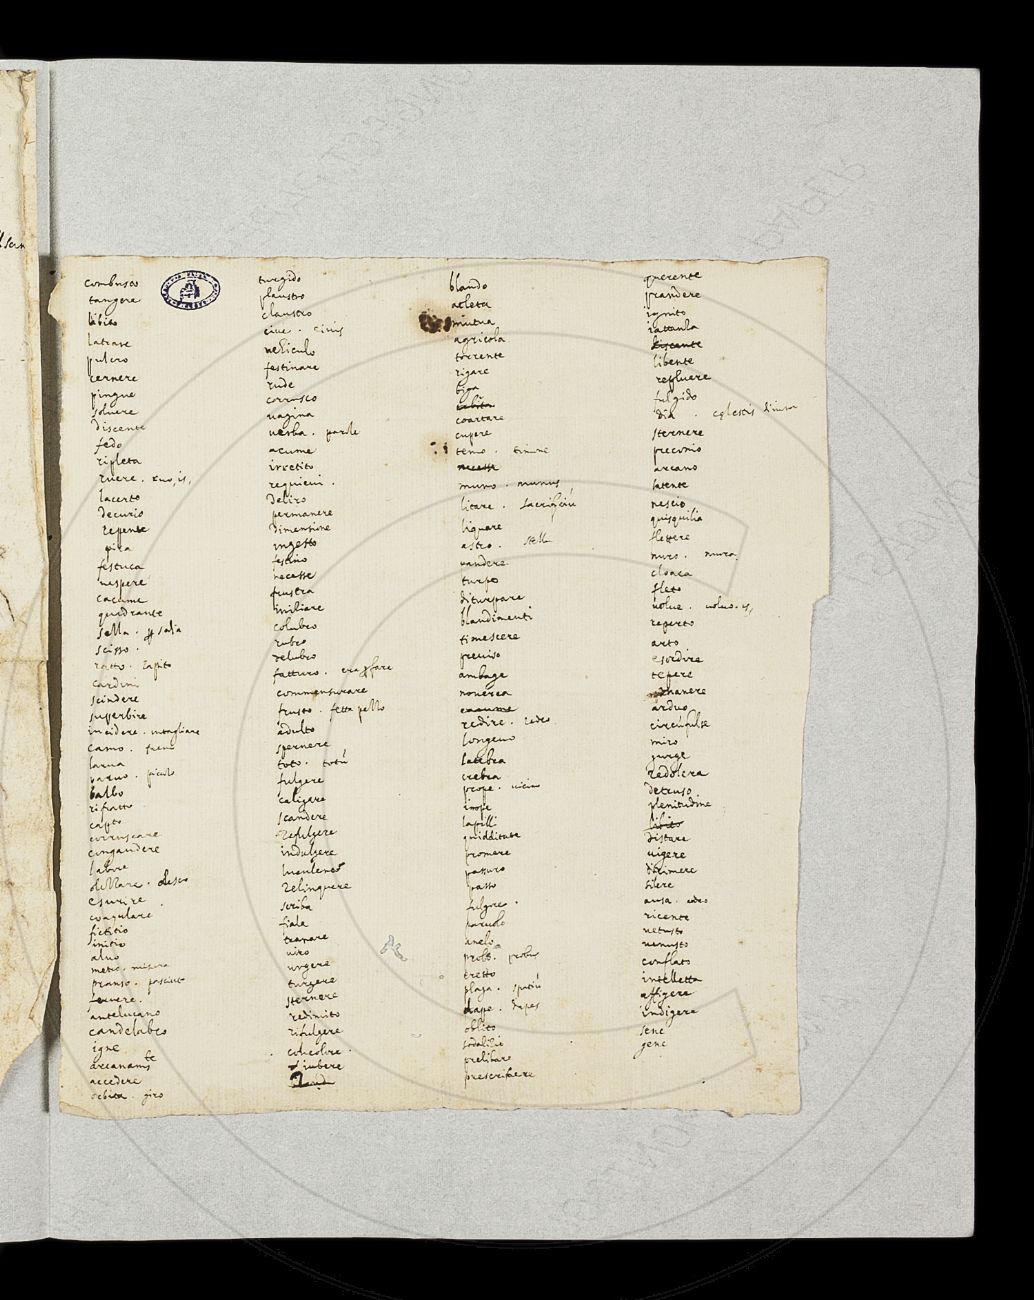 combusto
tangere
libito
latrare
pulcro
cernere
pingue
soluere
discente
fedo
ripleta
ruere . ruo, is,
lacerto
decurio
repente
pira
festuca
uespere
cacume
quadrante
sella . salia
scisso .
ratto . rapito
cardini
scindere
superbire
incidere . intagliare
camo . freno
larua
paruo . picolo
balbo
rifratto
capto
corruscare
congaudere
labore
esurire
coagulare
fictitio
initio
aluo
metro . misura
pranso . pasciuto
feruere .
antelucano
candelabro
igne
accedere
debita . giro
turgido
plaustro
claustro
ciue . ciuis
uehiculo
festinare
rude
corrusco
uagina
uerba . parole
acume
irretito
requieui .
deliro
permanere
dimensione
ingesto
festino
necesse
frustra
imiliare
colubro
rubro
delubro
fatturo .
commensurare
frusto . fetta pello
adulto
spernere
toto . totū
fulgere
caligere
scandere
refulgere
indulgere
luculento
relinquere
scriba
fiala
tranare
uiro
urgere
turgere
sternere
redimito
rifulgere
concolore .
iubere
blando
acleta
mutua
agricola
torrente
rigare
biga
coartare
cupere
temo . timone
necesse
muno . munus,
litare . sacrificiū
liquare
astro . stella
uandere
turpo
diturpare
blandimenti
timescere
preuiso
ambage
nouerca
cacume
redire . redeo
longeuo
latebra
crebra
prope . uicino
inope
lapilli
quidditate
promere
passuro
passo
fulgore .
paruolo
anelo
probo . probus
tresto
plaga . spatiū
dape . dapes
oblito
sodalitio
prelibare
prescriuere
querente
prandere
ignito
iattanza
discente
libente
refluere
fulgido
dia . celestis diuina
sternere
preconio
arcano
latente
nescio
quisquilia
flettere
nuro . nura
cloaca
fleto
uolue . uoluo. is,
reperto
arto
esordire
tepere
manere
arduo
circunfulse
miro
gurge
redolera
detruso
plenitudine
libito
distare
uigere
dirimere
silere
ricente
uetusto
uenusto
conflato
intelletta
affigere
indigere
sene
gene